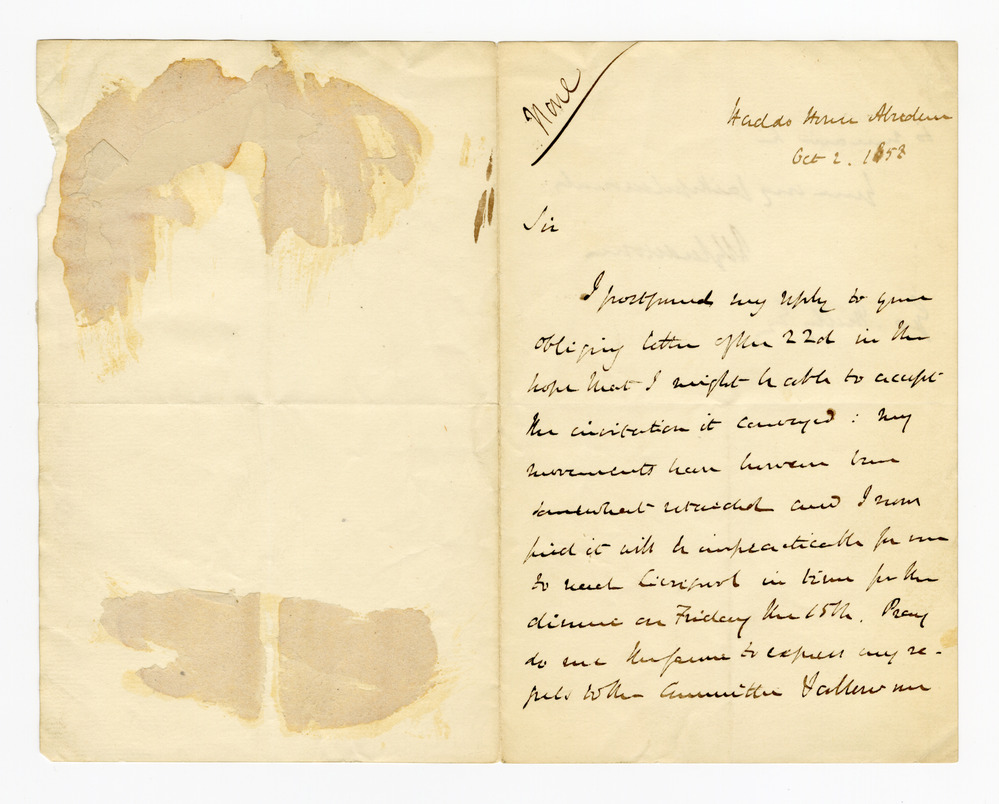 None
Haddo House Aberdeen
Oct 2. 1858
Sir
I postponed my reply to your
obliging letter of the 22d in the
hope that I might be able to accept
the invitation it conveyed: My
movements have however been
somewhat retarded and I now
find it will be impracticable for me
to reach Liverpool in time for the
dinner on Friday the 15th. Pray
do me the favour to express my re-
grets to the Committee & allow me